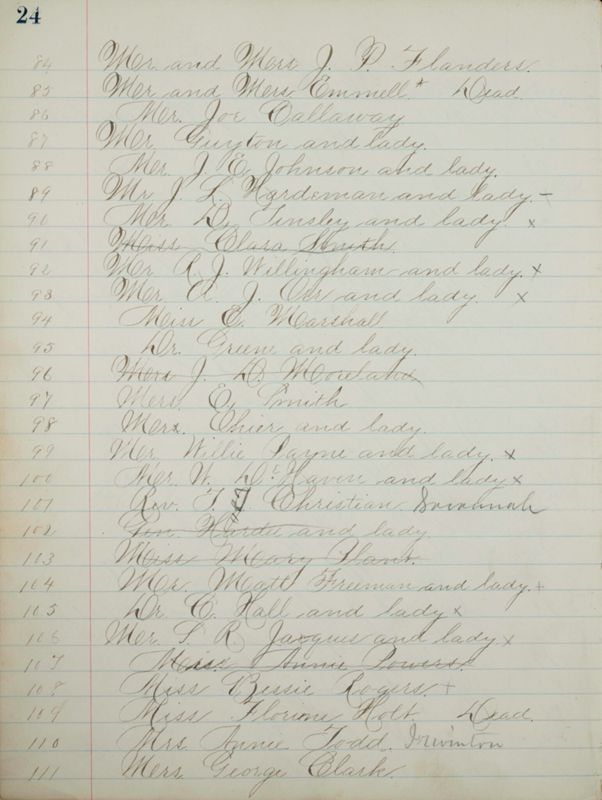 24
84 Mr. and Mrs. J. P. Flanders.
85 Mr. and Mrs. Emmell. Dead.
86 Mr. Joe Callaway
87 Mr. Guyton and lady.
88 Mr. J. E. Johnson and lady.
89 Mr J. L. Hardeman and lady.
90 Mr. D. Tinsley and lady. x
91 Miss Clara Smith.
92 Mr R. J. Willingham and lady. x
93 Mr. A. J. Orr and lady x
94 Miss E. Marshall
95 Dr. Greene and lady.
96 Mrs J. D. Moreland
97 Mrs. E. Smith
98 and lady.
99 Mr. Willie Payne and lady. x
100 Mr. W. DeHaven and lady x
101 Rev. T. J. Christian. Savannah
102 Gen. Hardee and lady
103 Miss Mary Plant.
104 Mr. Matt Freeman and lady. x
105 Dr. C. Hall and lady x
106 Mr S R Jaques and lady x
107 Miss Annie Powers.
108 Miss Bessie Rogers. x
109 Miss Florine Holt. Dead.
110 Mrs. Annie Todd. Irwinton
111 Mrs. George Clark.